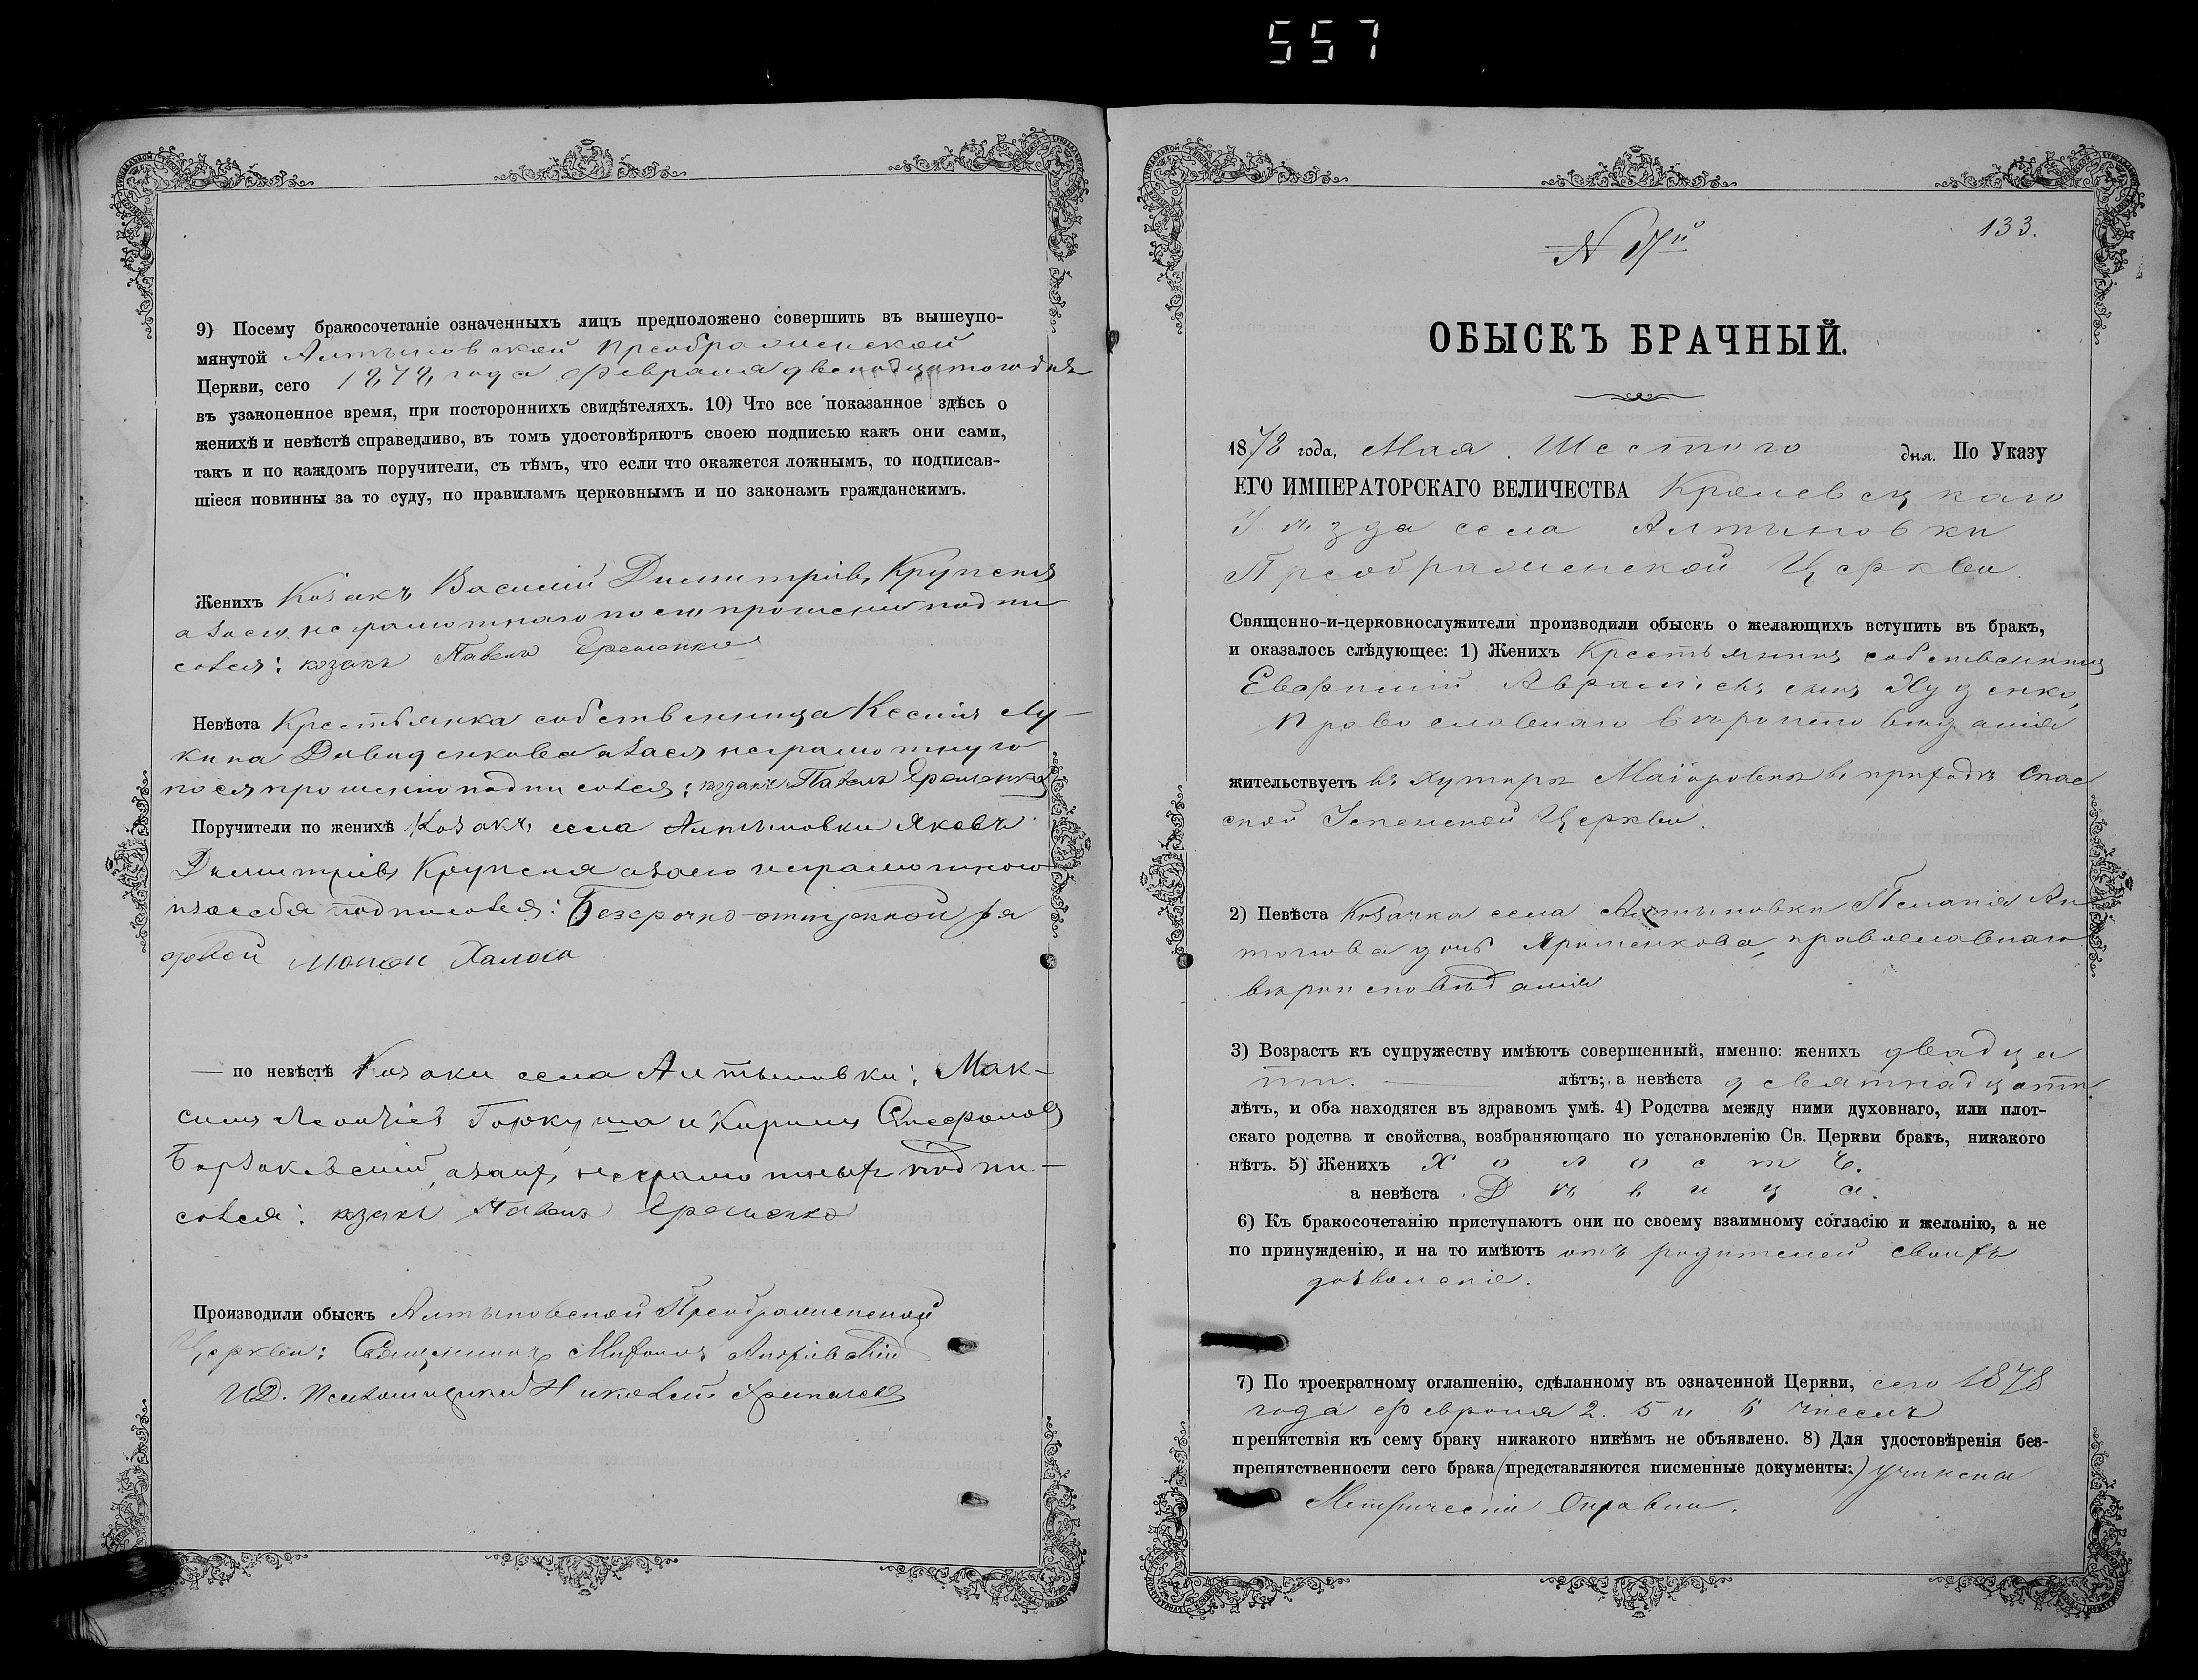 557
9) Посему бракосочетаніе означенныхъ лицъ предположено совершить въ вышеупо-
мянутой Алтыновской Преображенской
Церкви, сего 1878 года Февраля двенадцатого дня
въ узаконенное время, при постороннихъ свидѣтеляхъ. 10) Что все показанное здѣсь о
женихѣ и невѣстѣ справедливо, въ томъ удостовѣряютъ своею подписью какъ они сами,
такъ и по каждомъ поручители, съ тѣмъ, что если что окажется ложнымъ, то подписав-
шіеся повинны за то суду, по правиламъ церковнымъ и по законамъ гражданскимъ.
Женихъ Козакъ Василій Димитріевъ
а за его неграмотнаго по его прошенію подпи
сался: козакъ Павелъ Еременко
Невѣста Крестьянка собственница Ксенія Лу-
кина Давиденкова а за ея неграмотную
по ея прошенію подписался: козакъ Павелъ Еременко
Поручители по женихѣ Козакъ села Алтыновки Яковъ
Димитріевъ а за его неграмотного
подписался: Безсрочно-отпускной ря
довой
— по невѣстѣ Козаки села Алтыновки: Мак-
симъ Леонтіевъ и Кирилъ
а за ихъ неграмотныхъ подпи-
сался: козакъ Павелъ Еременко
Производили обыскъ Алтыновской Преображенской
Церкви: Священникъ
И.Д. Псаломщика Николай
133.
ОБЫСКЪ БРАЧНЫЙ.
1878 года, Мая Шестого дня. По Указу
ЕГО ИМПЕРАТОРСКАГО ВЕЛИЧЕСТВА Кролевецкаго
Уѣзда села Алтыновки
Преображенской Церкви.
Священно-и-церковнослужители производили обыскъ о желающихъ вступить въ бракъ,
и оказалось слѣдующее: 1) Женихъ Крестьянинъ собственникъ
Авраміевъ сынъ
Православнаго вѣроисповѣданія
жительствуетъ въ хуторѣ Маіоровкѣ въ приходѣ Спас
ской Церкви.
2) Невѣста Козачка села Алтыновки Пелагія Ан
тонова дочь православнаго
вѣроисповѣданія
3) Возрастъ къ супружеству имѣютъ совершенный, именно: женихъ двадца
ти. — лѣтъ; а невѣста девятнадцати
лѣтъ, и оба находятся въ здравомъ умѣ. 4) Родства между ними духовнаго, или плот-
скаго родства и свойства, возбраняющаго по установленію Св. Церкви бракъ, никакого
нѣтъ. 5) Женихъ Холостъ.
а невѣста Дѣвица.
6) Къ бракосочетанію приступаютъ они по своему взаимному согласію и желанію, а не
по принужденію, и на то имѣютъ отъ родителей своихъ
дозволеніе.
7) По троекратному оглашенію, сдѣланному въ означенной Церкви, сего 1878
года Февраля 2. 5 и 6 чиселъ
препятствія къ сему браку никакого никѣмъ не объявлено. 8) Для удостовѣренія без-
препятственности сего брака (представляются писменные документы:) учинены
Метрическія Справки.